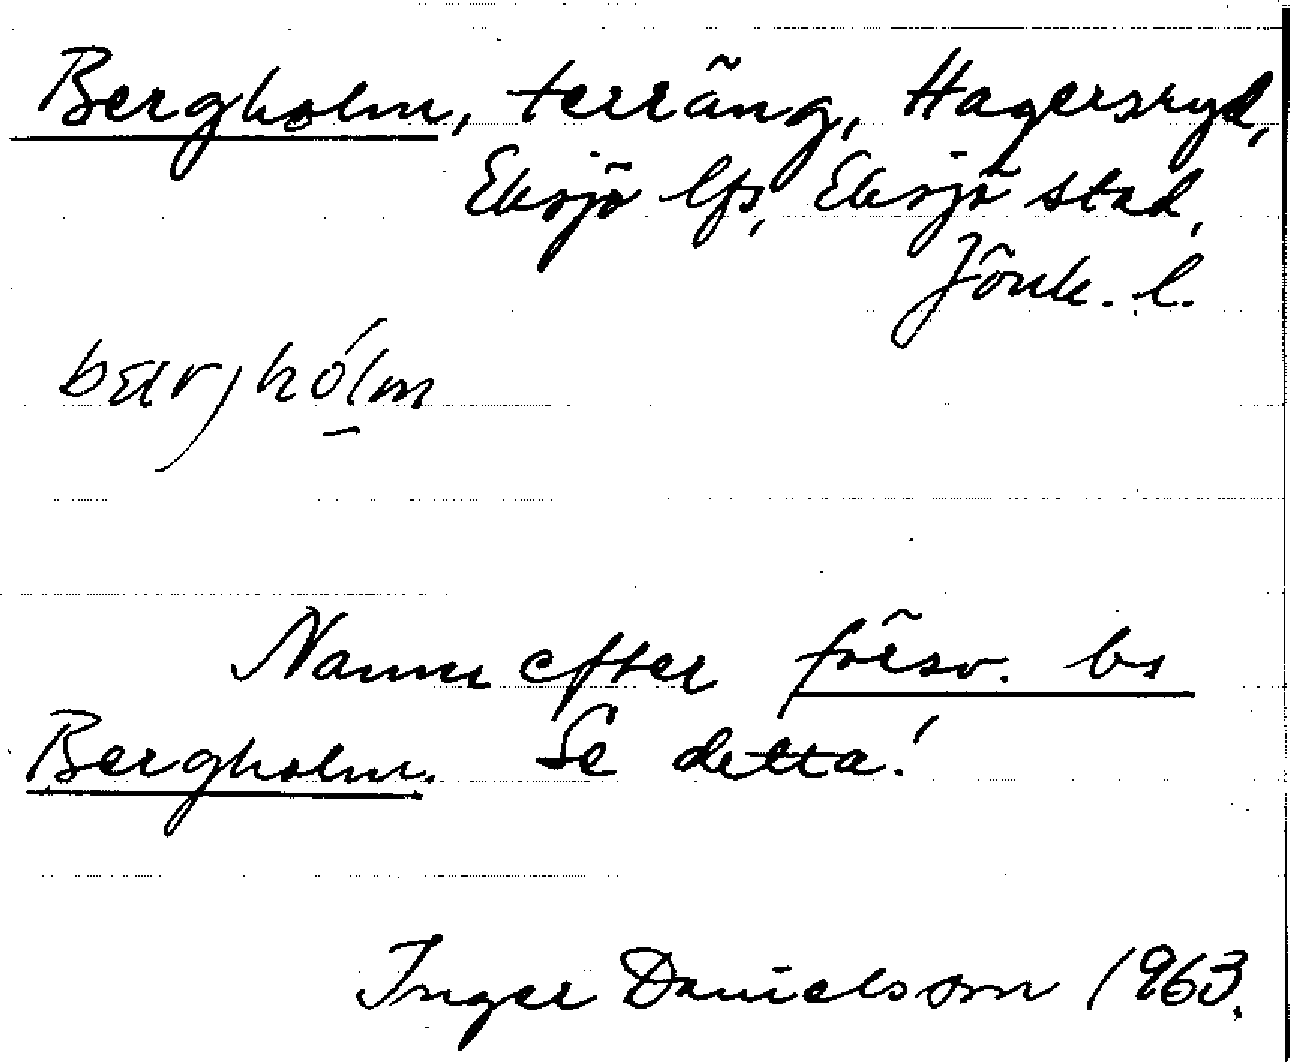 Bergholm, terräng, Hagersryd,
Eksjö lfs, Eksjö stad,
Jönk. l.
bærjhólm
Namn efter försv. bs
Bergholm. Se detta!
Inger Danielsson 1963.